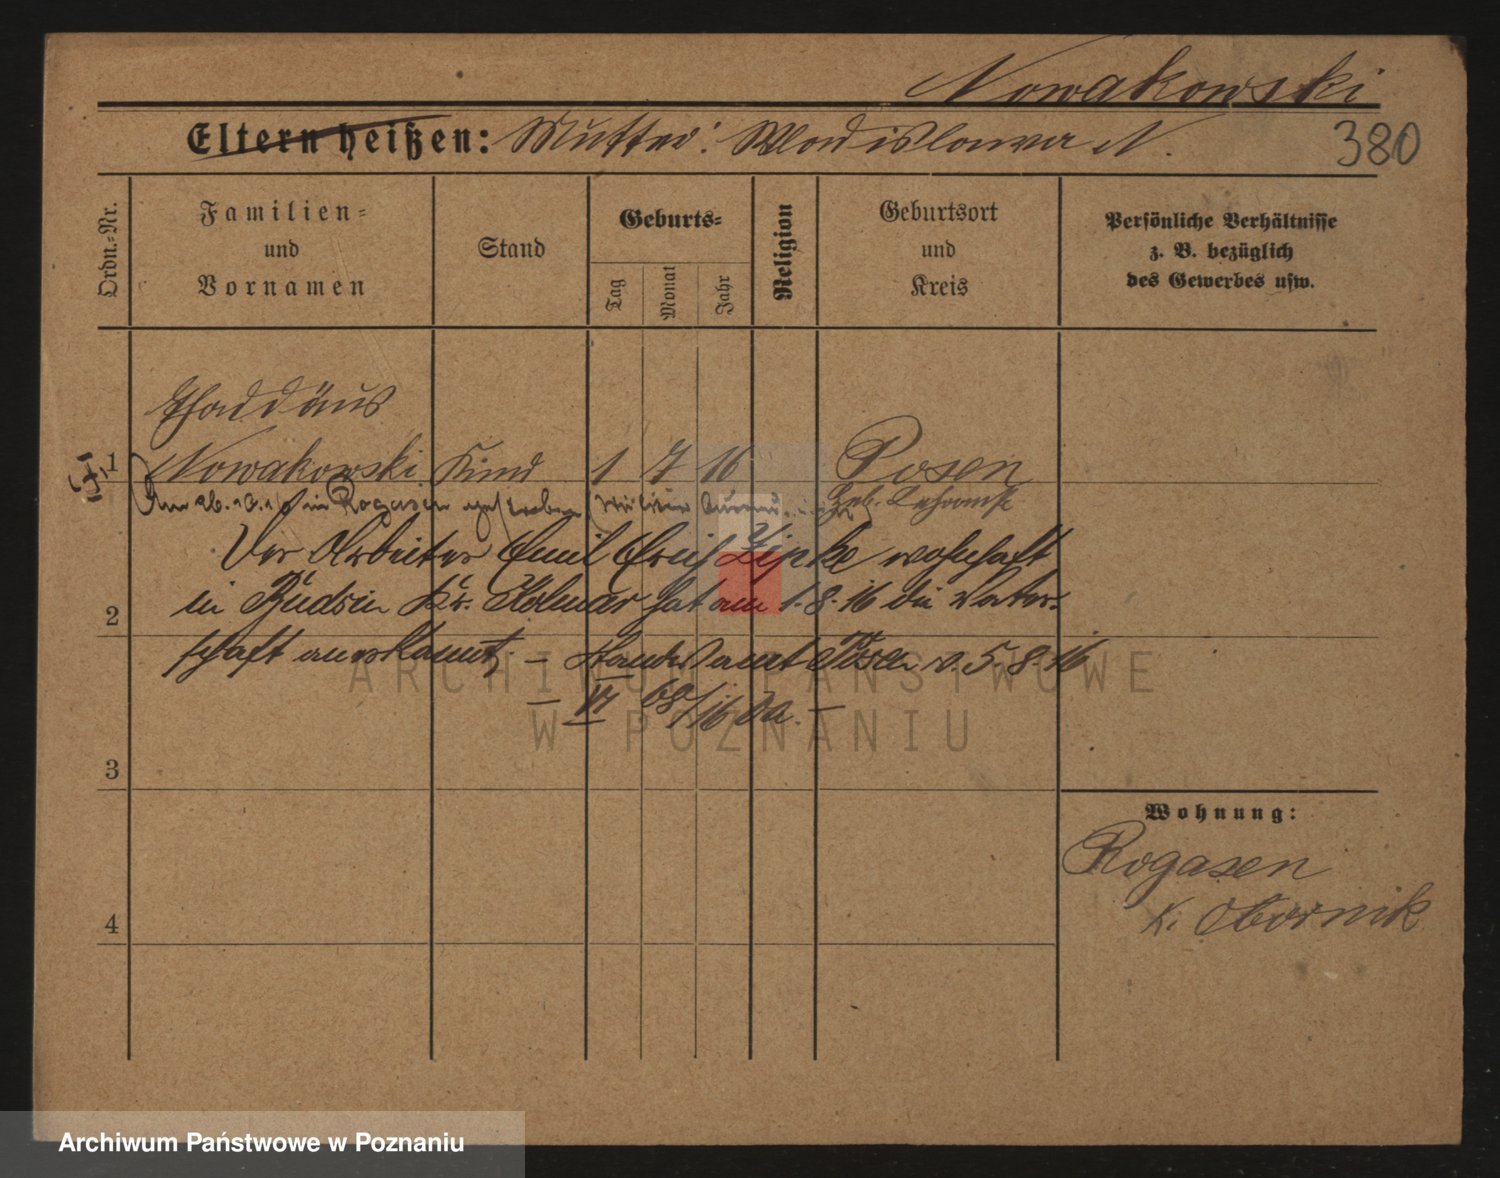 Nowakowski
Eltern heißen: Mutter: Wladislawa N.
380
Ordn.-Nr.
Familien-
und
Vornamen
Stand
Geburts-
Tag
Monat
Jahr
Religion
Geburtsort
und
Kreis
Persönliche Verhältnisse
z. B. bezüglich
des Gewerbes usw.
Thaddäus
1 Nowakowski Kind 1 7 16 Posen
Am 26. 10. 16 in Rogasen gestorben
Geb. Lehranst
Der Arbeiter Emil Erich Zipke wohnhaft
in Budsin Kr. Kolmar hat am 1.8.16 die Vater-
2
schaft anerkannt, – Standesamt Posen v. 5.8.16
– VI 68/16 –
ARCHIWUM PAŃSTWOWE
W POZNANIU
3
Wohnung:
Rogasen
K. Obornik
4
Archiwum Państwowe w Poznaniu